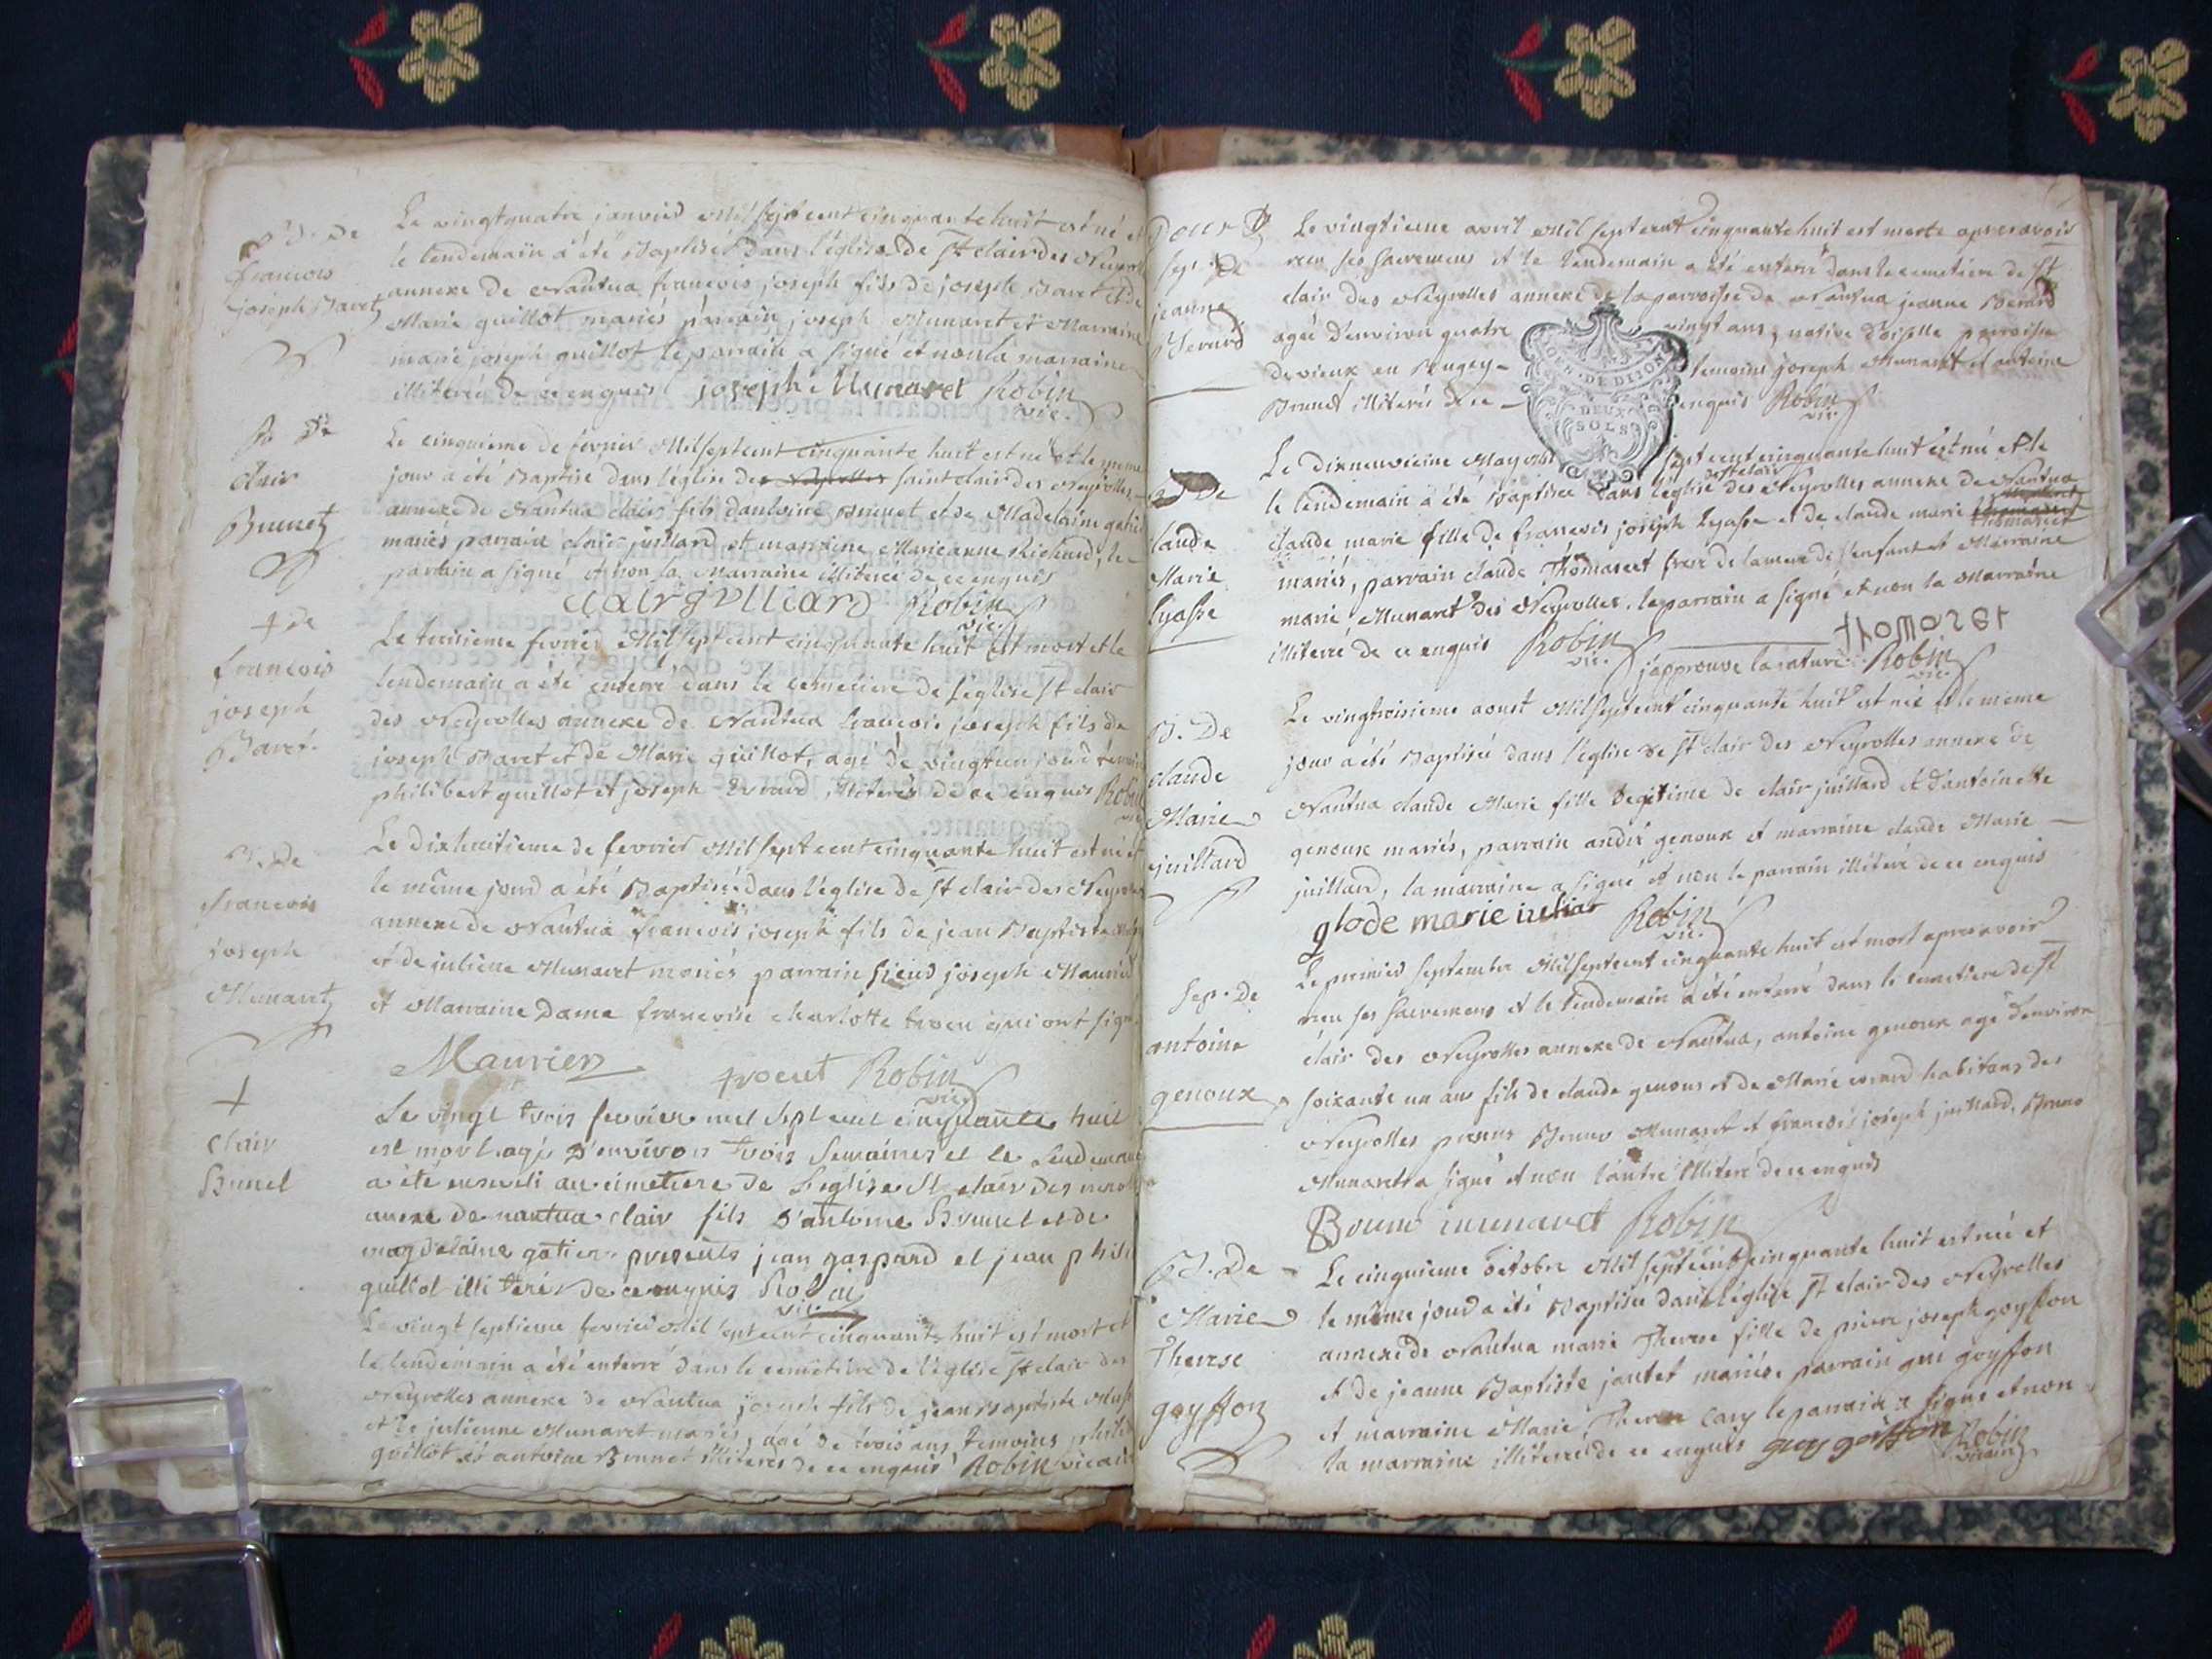 B. De
francois
joseph Baret
Le vingtquatre janvier Mil sept cent cinquante huit est né et
le lendemain a été Baptisé Dans l'église De St clair des Neyrolles
annexe de Nantua francois joseph fils de joseph Baret et de
Marie guillot mariés parrain joseph Munaret et Marraine
marie joseph guillot le parrain a signé et non la marraine
illiterée de ce enquise joseph Munaret Robin
vic.
B. De
clair
Brunet
Le cinquieme de fevrier Mil sept cent cinquante huit est né et le meme
jour a été Baptisé Dans l'église des Neyrolles saint clair des Neyrolles
annexe de Nantua clair fils d'antoine Brunet et de Madelaine gatier
mariés parrain clair juillard et marraine Marie anne Richard, le
parrain a signé et non la Marraine illiterée de ce enquis
clair gulliard Robin
vic.
+ de
francois
joseph
Baret.
Le troisieme fevrier Mil sept cent cinquante huit est mort et le
lendemain a été enterré dans le cemetiere de l'eglise St clair
des Neyrolles annexe de Nantua francois joseph fils de
joseph Baret et de Marie guillot, agé de vingt un jour temoins
philibert guillot et joseph Evrard illiterés de ce enquis Robin
vic.
B. De
francois
joseph
Munaret
Le dixhuitieme de fevrier Mil sept cent cinquante huit est né et
le même jour a été Baptisé dans l'église de St clair des Neyrolles
annexe de Nantua francois joseph fils de jean Baptiste
et de juliene Munaret mariés parrain sieur joseph Maurier
et Marraine Dame francoise charlotte trocu qui ont signé
Maurier trocut Robin
vic.
+
Clair
Brunet
Le vingt trois fevrier mil sept cent cinquante huit
est mort agé d'environ trois semaines et le lendemain
a été enseveli au cimetiere de l'église St clair des nerolles
anexe de nantua clair fils d'antoine Brunet et de
magdelaine gatier presents jean gaspard et jean phili
guillot illiterés de ce enquis Robin
vic.
Le vingt septieme fevrier Mil sept cent cinquante huit est mort et
le lendemain a été enterré dans le cemetiere de l'église St clair des
Neyrolles annexe de Nantua joseph fils de jean Baptiste
et de julienne Munaret mariés, agé de trois ans temoins philib
guillot et antoine Brunet illiterés de ce enquis Robin vicaire
Sep. De
jeanne
Berard
Le vingtieme avril Mil sept cent cinquante huit est morte apres avoir
reçu ses sacremens et le lendemain a été enterré dans le cemetiere de St
clair des Neyrolles annexe de la parroisse de Nantua jeanne Berard
agée d'environ quatre vingt ans, native d'oiselle parroisse
de vieux en Bugey temoins joseph Munaret et antoine
Brunet illiterés de ce enquis Robin
vic.
DE DIJON
DEUX
SOLS
B De
claude
Marie
Lyasse
Le dixneuvieme May Mil sept cent cinquante huit est née et le
le lendemain a été Baptisée Dans l'église de St clair des Neyrolles annexe de Nantua
claude marie fille de francois joseph Lyasse et de claude marie thomaset
mariés, parrain claude Thomaset frere de la mere de l'enfant et Marraine
marie Munaret des Neyrolles. le parrain a signé et non la Marraine
illiterée de ce enquis Robin
vic. thomaset
j'approuve la rature Robin
vic.
B. De
claude
Marie
juillard
Le vingtroisieme aoust Mil sept cent cinquante huit est née et le meme
jour a été Baptisée dans l'église de St clair des Neyrolles annexe de
Nantua claude Marie fille legitime de clair juillard et d'antoinette
genoux mariés, parrain andré genoux et marraine claude Marie
juillard, la marraine a signé et non le parrain illiteré de ce enquis
glode marie iuliar Robin
vic.
Sep. De
antoine
genoux
Le premier septembre Mil sept cent cinquante huit est mort apres avoir
recu ses sacremens et le lendemain a été enterré dans le cemetiere de St
clair des Neyrolles annexe de Nantua, antoine genoux agé d'environ
soixante un ans fils de claude genoux et de Marie evrard habitans des
Neyrolles presens Bruno Munaret et francois joseph juillard. Bruno
Munaret a signé et non l'autre illiteré de ce enquis
Bouno munaret Robin
B. De
Marie
Therese
goyffon
Le cinquieme octobre Mil sept cent cinquante huit est née et
le même jour a été Baptisée dans l'église St clair des Neyrolles
annexe de Nantua marie Therese fille de pierre joseph goyffon
et de jeanne Baptiste jantet mariés, parrain gui goyffon
et marraine Marie Therese Cary le parrain a signé et non
la marraine illiterée de ce enquis guy goiffon Robin
vicaire